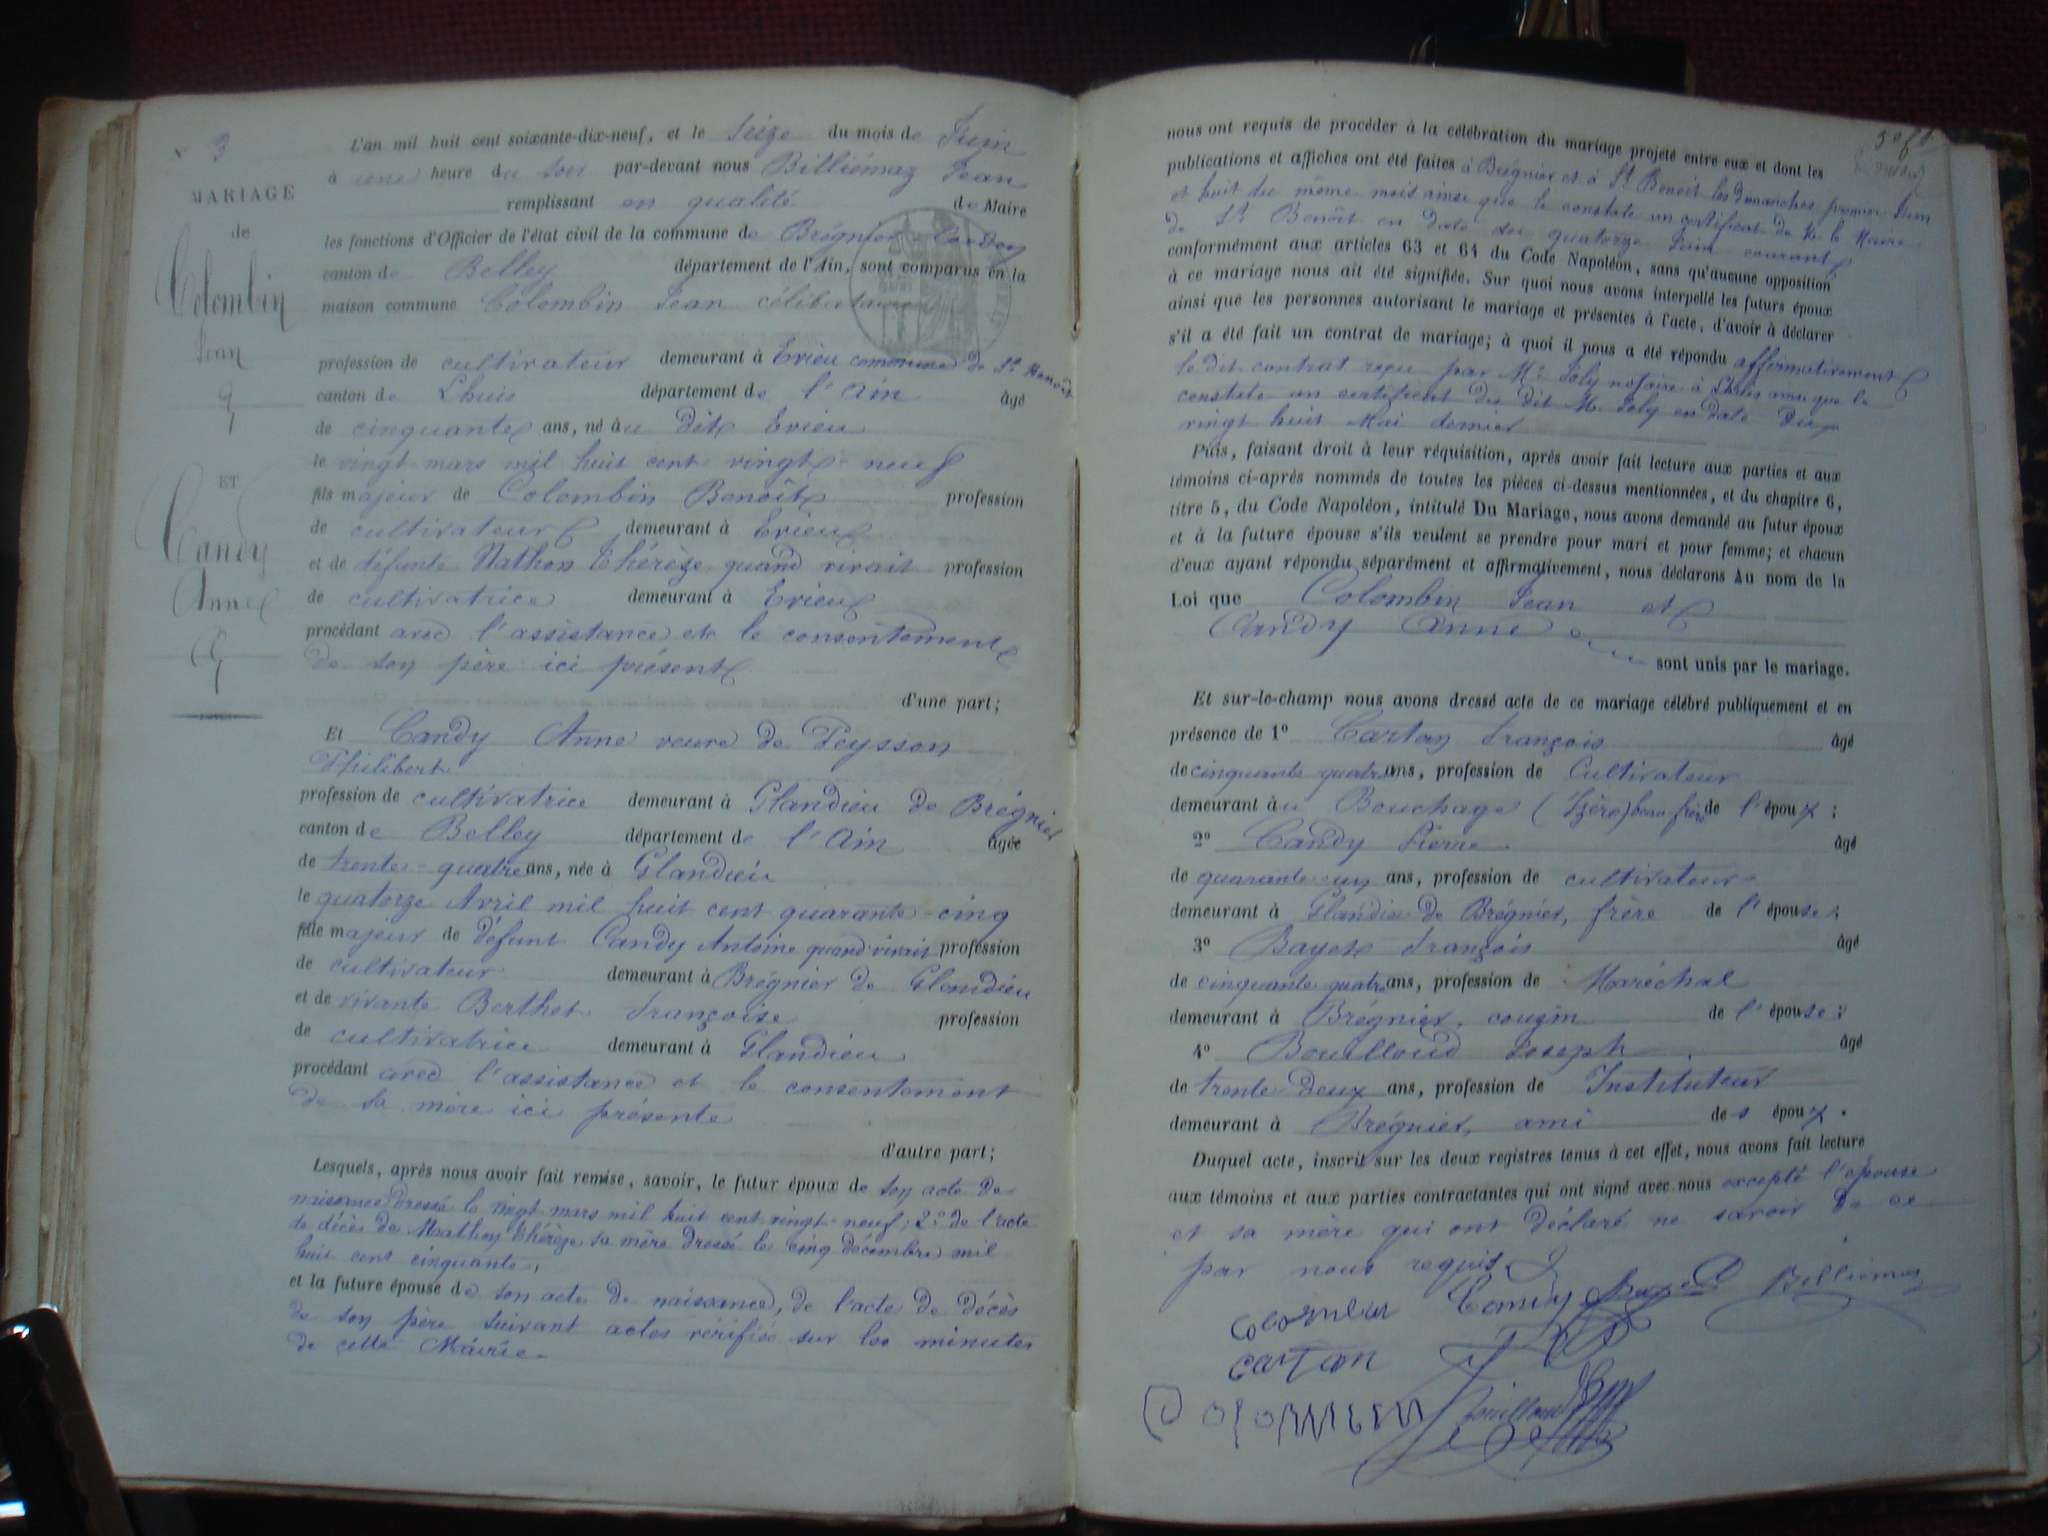 N° 3
MARIAGE
de
Colombin
Jean
ET
Candy
Anne
L'an mil huit cent soixante-dix-neuf, et le Seize du mois de Juin
à une heure du soir par-devant nous Billiémaz Jean
remplissant en qualité de Maire
les fonctions d'Officier de l'état civil de la commune de Brégnier-Cordon
canton de Belley département de l'Ain, sont comparus en la
maison commune Colombin Jean célibataire
profession de cultivateur demeurant à Evieu commune de St Benoit
canton de Lhuis département de l'Ain âgé
de cinquante ans, né au dit Evieu
le vingt mars mil huit cent vingt-neuf
fils majeur de Colombin Benoît profession
de cultivateur demeurant à Evieu
et de défunte Mathon Thérèze quand vivait profession
de cultivatrice demeurant à Evieu
procédant avec l'assistance et le consentement
de son père ici présent
d'une part;
Et Candy Anne veuve de Peysson
Philibert
profession de cultivatrice demeurant à Glandieu de Brégnier
canton de Belley département de l'Ain âgée
de trente-quatre ans, née à Glandieu
le quatorze Avril mil huit cent quarante-cinq
fille majeur de défunt Candy Antoine quand vivait profession
de cultivateur demeurant à Brégnier de Glandieu
et de vivante Berthet Françoise profession
de cultivatrice demeurant à Glandieu
procédant avec l'assistance et le consentement
de sa mère ici présente
d'autre part;
Lesquels, après nous avoir fait remise, savoir, le futur époux de son acte de
naissance dressé le vingt mars mil huit cent vingt-neuf; 2° de l'acte
de décès de Mathon Thérèze sa mère dressé le cinq décembre mil
huit cent cinquante,
et la future épouse de son acte de naissance, de l'acte de décès
de son père suivant actes vérifiés sur les minutes
de cette Mairie.
nous ont requis de procéder à la célébration du mariage projeté entre eux et dont les
publications et affiches ont été faites à Brégnier et à St Benoit les dimanches premier Juin
et huit du même mois ainsi que le constate un certificat de M. le Maire
de St Benoît en date du quatorze Juin courant
conformément aux articles 63 et 64 du Code Napoléon, sans qu'aucune opposition
à ce mariage nous ait été signifiée. Sur quoi nous avons interpellé les futurs époux
ainsi que les personnes autorisant le mariage et présentes à l'acte, d'avoir à déclarer
s'il a été fait un contrat de mariage; à quoi il nous a été répondu affirmativement
le dit contrat reçu par Me Joly notaire à Lhuis ainsi que le
constate un certificat du dit Me Joly en date du
vingt huit Mai dernier
Puis, faisant droit à leur réquisition, après avoir fait lecture aux parties et aux
témoins ci-après nommés de toutes les pièces ci-dessus mentionnées, et du chapitre 6,
titre 5, du Code Napoléon, intitulé Du Mariage, nous avons demandé au futur époux
et à la future épouse s'ils veulent se prendre pour mari et pour femme; et chacun
d'eux ayant répondu séparément et affirmativement, nous déclarons Au nom de la
Loi que Colombin Jean et
Candy Anne
sont unis par le mariage.
Et sur-le-champ nous avons dressé acte de ce mariage célébré publiquement et en
présence de 1° Cartan François âgé
de cinquante quatre ans, profession de Cultivateur
demeurant au Bouchage (Izère) beau-frère de l'époux;
2° Candy Pierre âgé
de quarante-un ans, profession de cultivateur
demeurant à Glandieu de Brégnier, frère de l'épouse;
3° Bayet François âgé
de cinquante-quatre ans, profession de Maréchal
demeurant à Brégnier, cousin de l'épouse;
4° Bouilloud Joseph âgé
de trente-deux ans, profession de Instituteur
demeurant à Brégnier, ami des époux.
Duquel acte, inscrit sur les deux registres tenus à cet effet, nous avons fait lecture
aux témoins et aux parties contractantes qui ont signé avec nous excepté l'épouse
et sa mère qui ont déclaré ne savoir de ce
par nous requis
Candy Bayet Billiémaz
cartan
Bouilloud